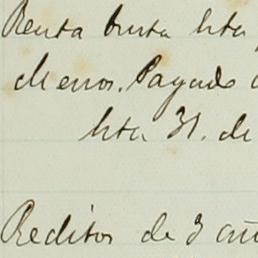 Renta bruta hta
Menos. Pagado
hta 31. de
Reditos de 3 añ